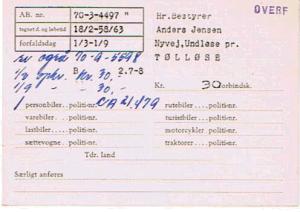 OVERF
AB. nr. 70-3-4497 "
tegnet d. og løbetid 18/2-58/63
forfaldsdag 1/3-1/9
Hr. Bestyrer
Anders Jensen
Nyvej, Undløse pr.
TØLLØSE
også 70-9-5598
B 2.7-8
Kr. 30,-
1/9 - 30,-
Kr. 30 forbindsk.
CA 21.479
personbiler politi-nr.
varebiler - politi-nr.
lastbiler - politi-nr.
sættevogne - politi-nr.
Tdr. land
rutebiler - politi-nr.
turistbiler - politi-nr.
motorcykler - politi-nr.
traktorer - politi-nr.
Særligt anføres